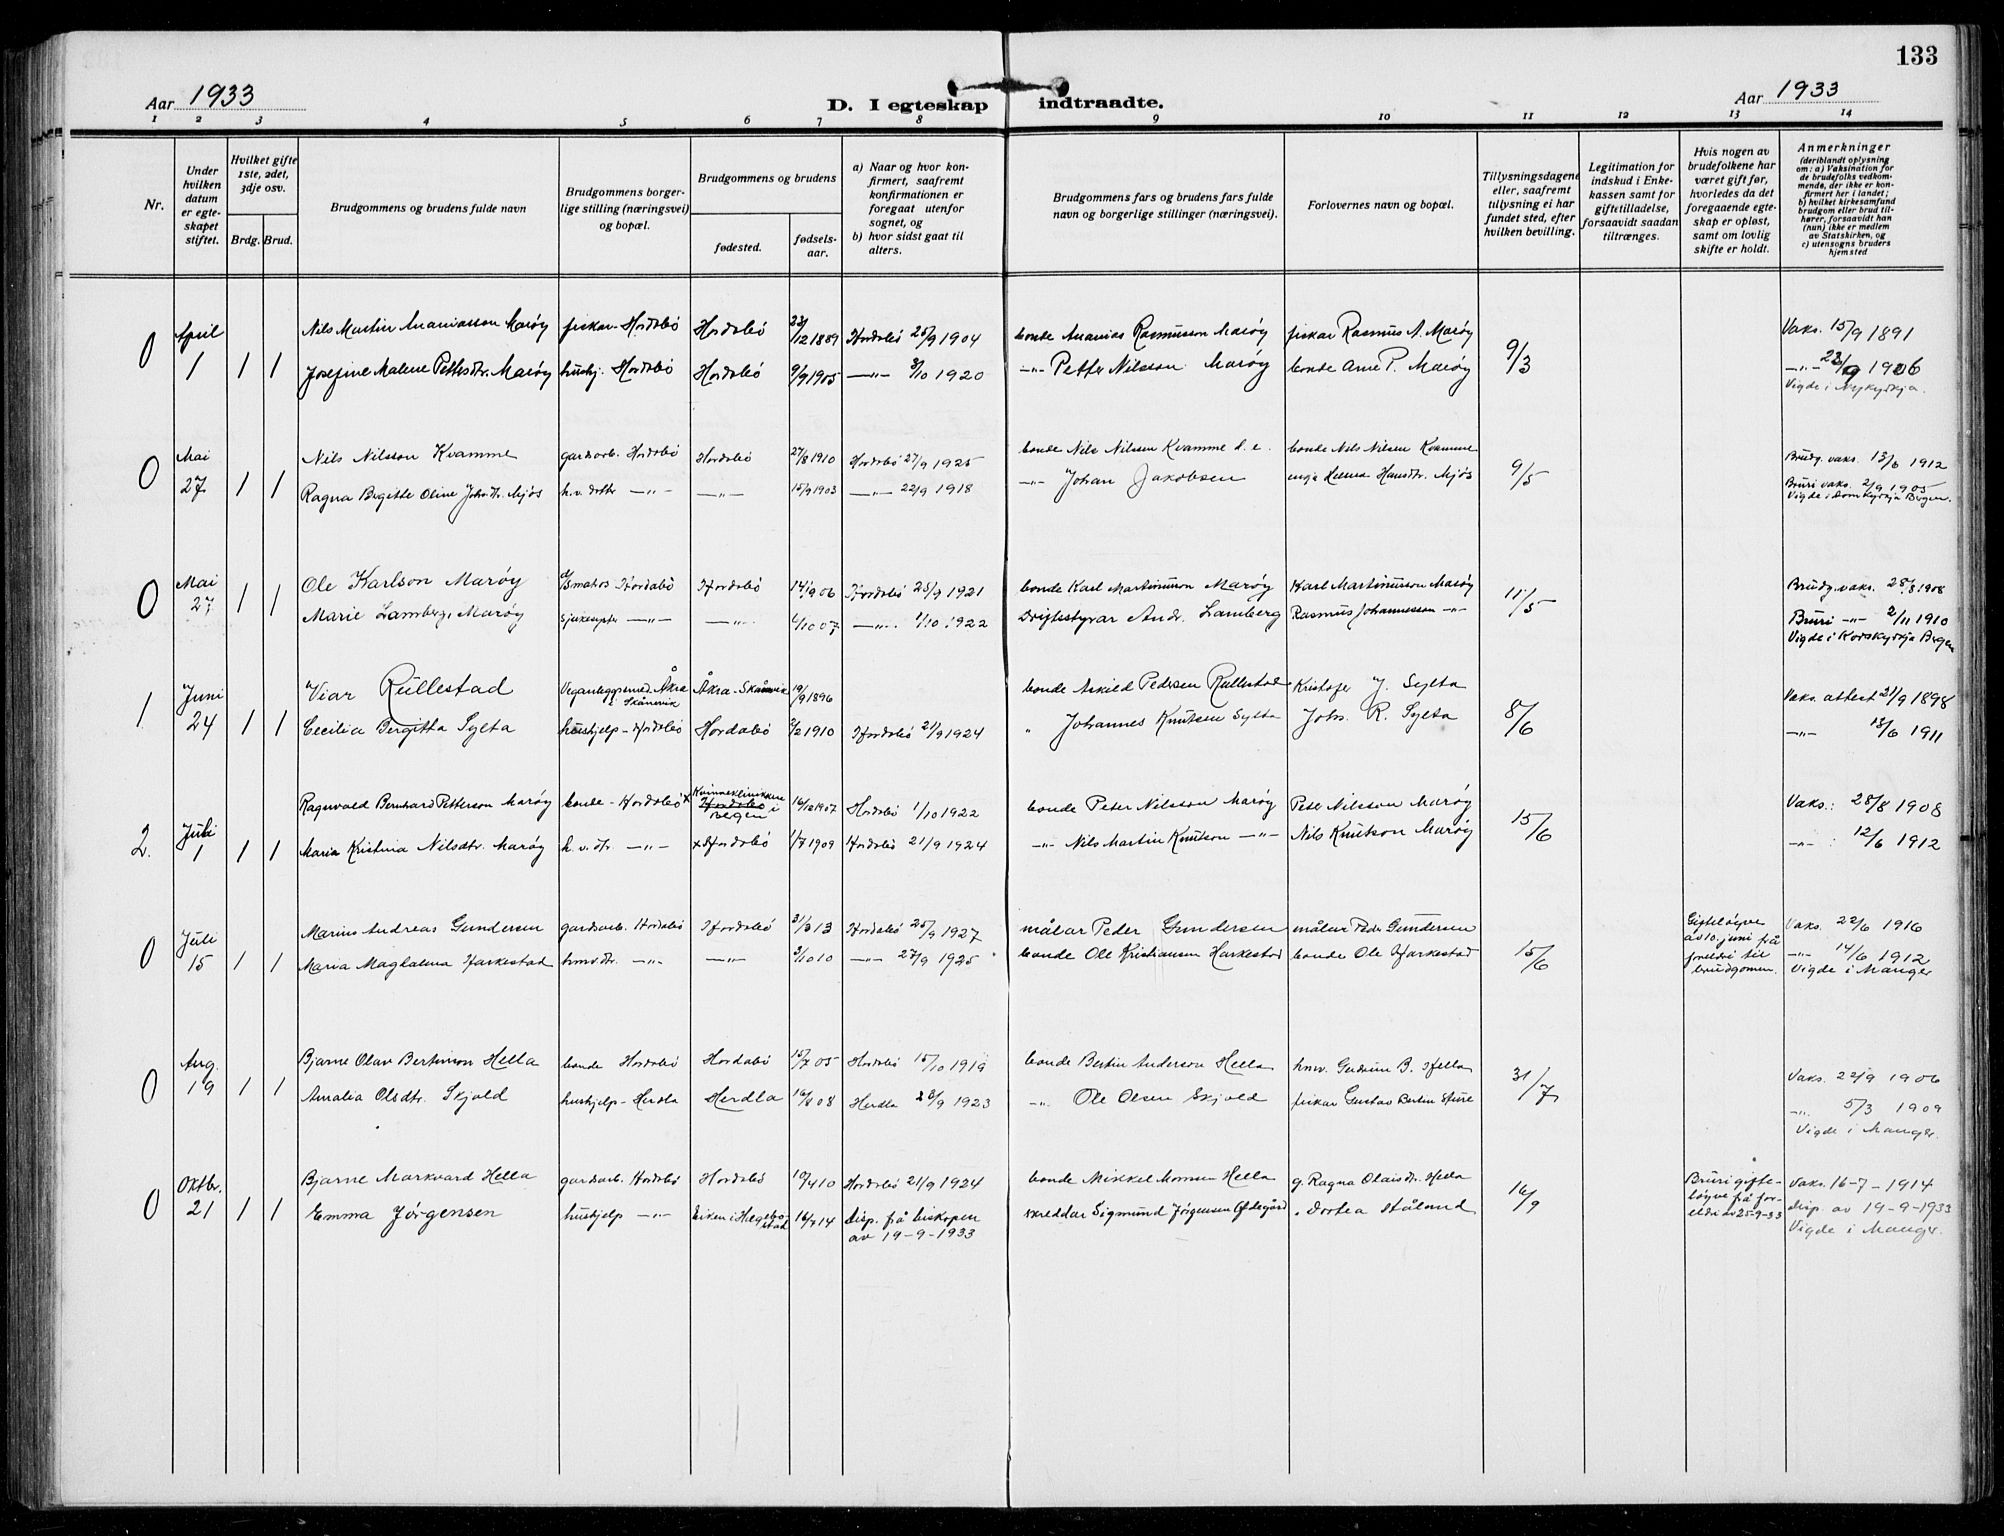 133
Aar 1933
D. I egteskap indtraadte.
Aar 1933
1 2 3 4 5 6 7 8 9 10 11 12 13 14
Nr.
Under hvilken datum er egteskapet stiftet.
Hvilket gifte 1ste, 2det, 3dje osv.
Brdg. Brud.
Brudgommens og brudens fulde navn
Brudgommens borgerlige stilling (næringsvei) og bopæl.
Brudgommens og brudens
fødested.
fødselsaar.
a) Naar og hvor konfirmert, saafremt konfirmationen er foregaat utenfor sognet, og
b) hvor sidst gaat til alters.
Brudgommens fars og brudens fars fulde navn og borgerlige stillinger (næringsvei).
Forlovernes navn og bopæl.
Tillysningsdagene eller, saafremt tillysning ei har fundet sted, efter hvilken bevilling.
Legitimation for indskud i Enkekassen samt for giftetilladelse, forsaavidt saadan tiltrænges.
Hvis nogen av brudefolkene har været gift før, hvorledes da det foregaaende egteskap er opløst, samt om lovlig skifte er holdt.
Anmerkninger
(deriblandt oplysning om: a) Vaksination for de brudefolks vedkommende, der ikke er konfirmert her i landet; b) hvilket kirkesamfund brudgom eller brud tilhører, forsaavidt han (hun) ikke er medlem av Statskirken, og c) utensogns bruders hjemsted
0 April Nils Martin Ananiasson Marøy fiskar - Hordabö Hordabö 23/12 1889 Hordabö 25/9 1904 bonde Ananias Rasmusson Marøy fiskar Rasmus A. Marøy 9/3 Vaks. 15/9 1891
1 1 1 Josefine Malene Pettersdtr. Marøy hushj. Hordabö Hordabö 9/9 1905 —"— 3/10 1920 —"— Petter Nilsson Marøy bonde Arne P. Marøy —"— 23/9 1906
Vigde i Nykyrkja.
0 Mai Nils Nilsson Kvamme gardsarb. Hordabö Hordabö 27/8 1910 Hordabö 27/9 1925 bonde Nils Nilsen Kvamme d. e. bonde Nils Nilsen Kvamme 9/5 Brudg. vaks. 13/6 1912
27 1 1 Ragna Birgitte Oline Johsdtr. Mjøs h.v. dotter —"— —"— 15/9 1903 —"— 22/9 1918 —"— Johan Jakobsen Hansdtr. Mjøs Bruri vaks. 2/9 1905
Vigde i Domkyrkja Bergen.
0 Mai Ole Karlson Marøy matros Hordabö Hordabö 14/1 906 Hordabö 25/9 1921 bonde Karl Martinusson Marøy Karl Martinusson Marøy 11/5 Brudg. vaks. 28/8 1908
27 1 1 Marie Lamberg, Marøy sjukesyster —"— —"— 4/10 07 —"— 1/10 1922 Driftsstyrar Andr. Lamberg Rasmus Johannesson —"— Bruri —"— 2/11 1910
Vigde i Korskyrkja Bergen
1 Juni Viar Rullestad Veganleggsmed. Åkra i Skånevik Åkra - Skånevik 19/9 1896 bonde Askild Pedersen Rullestad Kristofer J. Sylta 8/6 Vaks. attest 21/9 1898
24 1 1 Cecilia Bergitta Sylta hushjelp - Hordabö Hordabö 2/2 1910 Hordabö 21/9 1924 " Johannes Knutsen Sylta Johs. R. Sylta —"— 13/6 1911
2. Juli Ragnvald Bernhard Petterson Marøy bonde - Hordabö x Kvinneklinikken i Bergen Hordabö 16/12 1907 Hordabö 1/10 1922 bonde Peter Nilsson Marøy Peter Nilsson Marøy 15/6 Vaks.: 28/8 1908
1 1 1 Maria Kristina Nilsdtr. Marøy h. v. dtr. —"— x Hordabö 1/7 1909 Hordabö 21/9 1924 —"— Nils Martin Knutson —"— Nils Knutson Marøy —"— : 12/6 1912
0 Juli Marius Andreas Gundersen gardsarb. Hordabö Hordabö 31/3 13 Hordabö 25/9 1927 målar Peder Gundersen målar Peder Gundersen 15/6 Gifteløyve av 10. juni frå foreldri til brudgomen. Vaks. 22/6 1916
15 1 1 Maria Magdalena Harkestad hmv.dtr. —"— —"— 3/10 10 —"— 27/9 1925 bonde Ole Kristiansen Harkestad bonde Ole Harkestad —"— 14/6 1912
Vigde i Manger
0 Aug. Bjarne Olav Bertinson Hella bonde Hordabö Hordabö 15/7 05 Hordabö 15/10 1919 bonde Bertin Anderson Hella hmv. Gudrun B. Hella 31/7 Vaks. 22/9 1906
19 1 1 Amalia Olsdtr. Skjold hushjelp - Herdla Herdla 08 Herdla 23/9 1923 —"— Ole Olsen Skjold fiskar Gustav Bertin Sture —"— 5/3 1909
Vigde i Manger.
0 Oktbr. Bjarne Markvard Hella gardsarb. Hordabö Hordabö 10/4 10 Hordabö 21/9 1924 bonde Mikkel Monsen Hella g. Ragna Olaisdtr. Hella 16/9 Bruri gifteløyve frå foreldri av 25-9-33 Vaks. 16-7-1914
21 1 1 Emma Jörgensen hushjelp —"— Eiken i Hægebostad 14 Disp. frå biskopen av 19-9-1933 skreddar Sigmund Jörgensen Ødegård " Dortea Ståland disp. av 19-9-1933
Vigde i Manger.